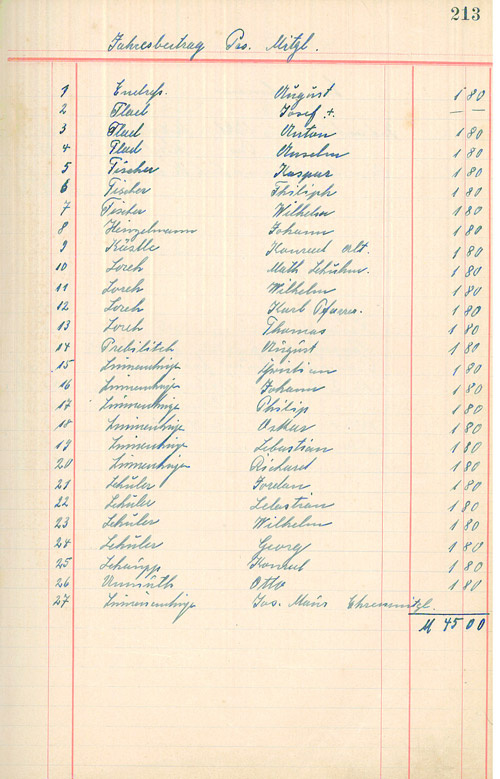 213
Jahresbeitrag Pas. Mitgl.
1 Endres. August 1 80
2 Flad Josef + — —
3 Flad Anton 1 80
4 Flad Anselm 1 80
5 Fischer Kaspar 1 80
6 Fischer Philiph 1 80
7 Fischer Wilhelm 1 80
8 Heinzelmann Johann 1 80
9 Kästle Konrad alt. 1 80
10 Lorch Math. Schuhm. 1 80
11 Lorch Wilhelm 1 80
12 Lorch Karl Pfarrs. 1 80
13 Lorch Thomas 1 80
14 Prebilitch August 1 80
15 Christian 1 80
16 Johann 1 80
17 Philip 1 80
18 Oskar 1 80
19 Sebastian 1 80
20 Richard 1 80
21 Schüler Jordan 1 80
22 Schüler Sebastian 1 80
23 Schüler Wilhelm 1 80
24 Schüler Georg 1 80
25 Schaupp Konrad 1 80
26 Unmuth Otto 1 80
27 Jos. Maurs Ehrenmitgl.
M 45 00